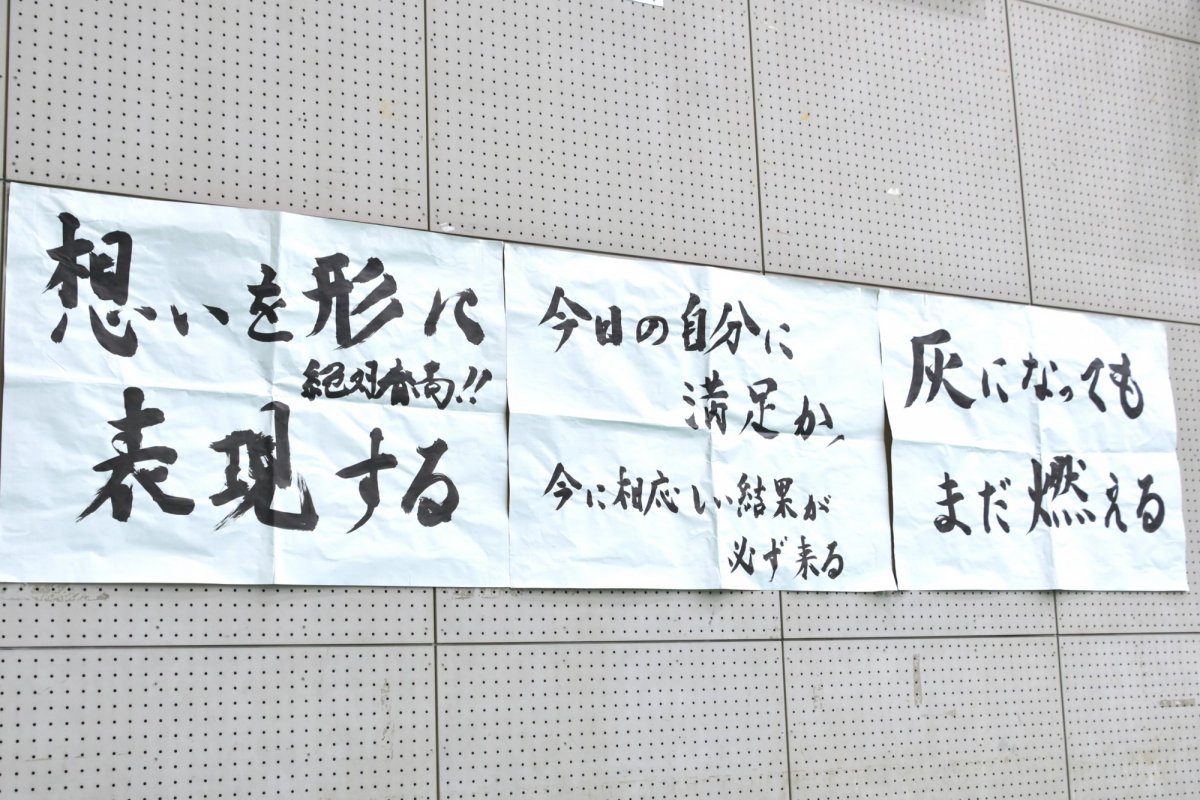 想いを形に
絶対
表現する
今日の自分に
満足か、
今に相応しい結果が
必ず来る
灰になっても
まだ燃える